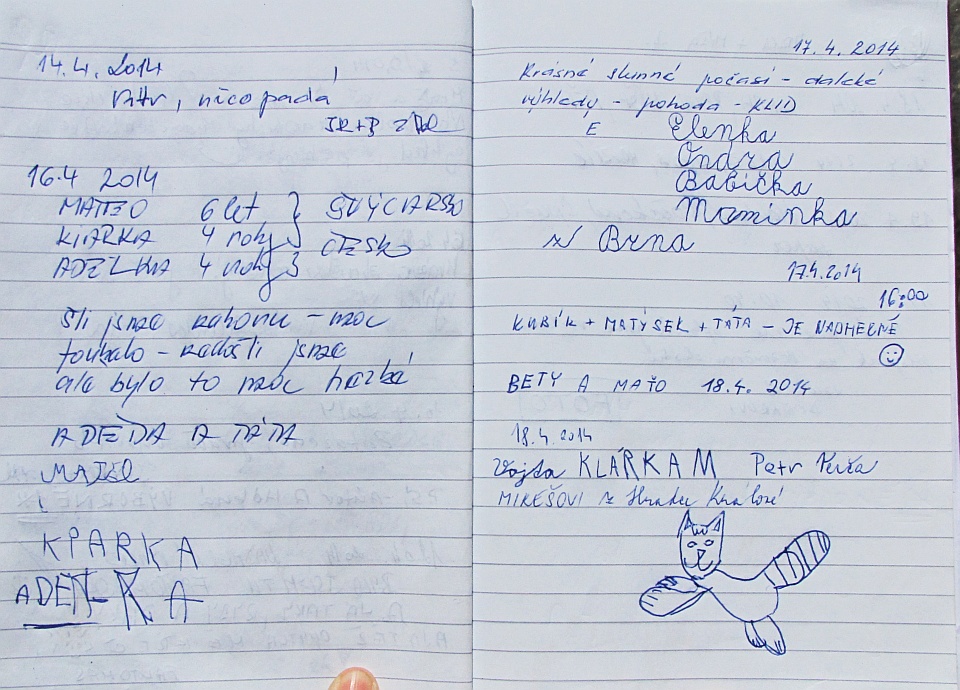 14.4. 2014
Vítr, nico pada
16.4 2014
MATTEO 6 let } ŠVÝCARSKO
KLÁRKA 4 roky } ČESKO
ADÉLKA 4 roky
šli jsme nahoru - moc
foukalo - radosti jsme
ale bylo to moc hezké
A DĚDA A TÁTA
MATEO
KPARKA
ADEŇ-KA
17.4. 2014
Krásné slunné počasí - daleké
výhledy - pohoda - KLID
E Elenka
Ondra
Babička
Maminka
z Brna
17.4.2014
16:00
KUBÍK + MATÝSEK + TÁTA - JE NÁDHERNĚ
BETY A MAŤO 18.4. 2014
18.4.2014
Vojta KLÁRKA M Petr
MIKEŠOVI z Hradec Králové